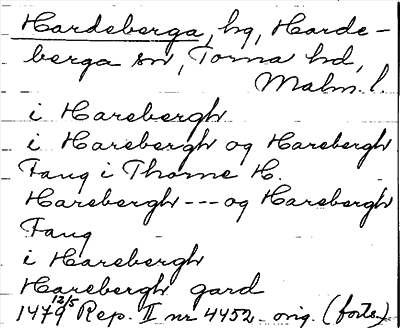 Hardeberga, hg, Harde-
berga sn, Torna hd,
Malm. l.
i Harebergh
i Harebergh og Harebergh
Fang i Thorne H.
Harebergh --- og Harebergh
Fang
i Harebergh
Harebergh gard
1479 12/5 Rep. II nr 4452 orig. (forts.)